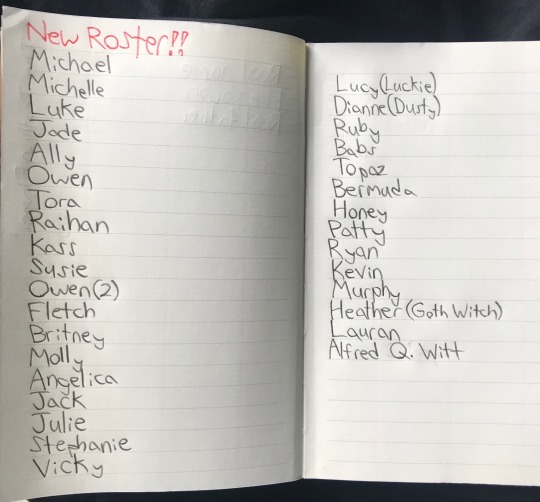 New Roster!!
Michael
Michelle
Luke
Jade
Ally
Owen
Tora
Raihan
Kass
Susie
Owen(2)
Fletch
Britney
Molly
Angelica
Jack
Julie
Stephanie
Vicky
Lucy(Luckie)
Dianne(Dusty)
Ruby
Babs
Topaz
Bermuda
Honey
Patty
Ryan
Kevin
Murphy
Heather(Goth Witch)
Lauran
Alfred Q. Witt